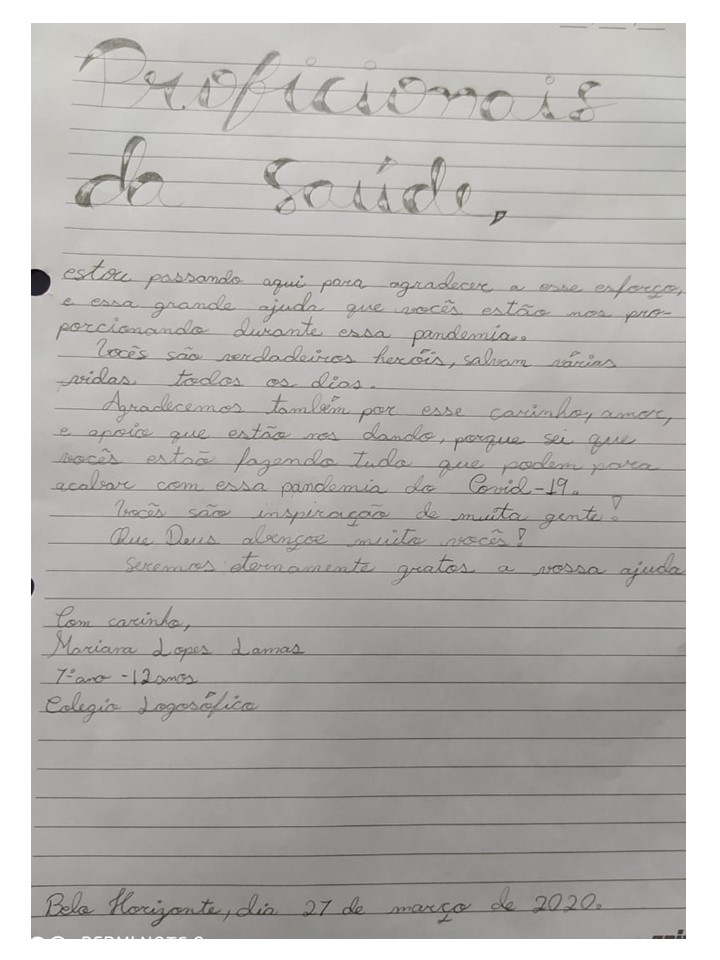 Proficionais
da Saúde,
estou passando aqui para agradecer a esse esforço,
e essa grande ajuda que vocês estão nos pro-
porcionando durante essa pandemia.
Vocês são verdadeiros heróis, salvam várias
vidas todos os dias.
Agradecemos também por esse carinho, amor,
e apoio que estão nos dando, porque sei que
vocês estão fazendo tudo que podem para
acabar com essa pandemia do Covid-19.
Vocês são inspiração de muita gente!
Que Deus abençoe muito vocês!
Seremos eternamente gratos a vossa ajuda
Com carinho,
Mariana Lopes Lamas
7º ano - 12 anos
Colegio Logosófico
Belo Horizonte, dia 27 de março de 2020.